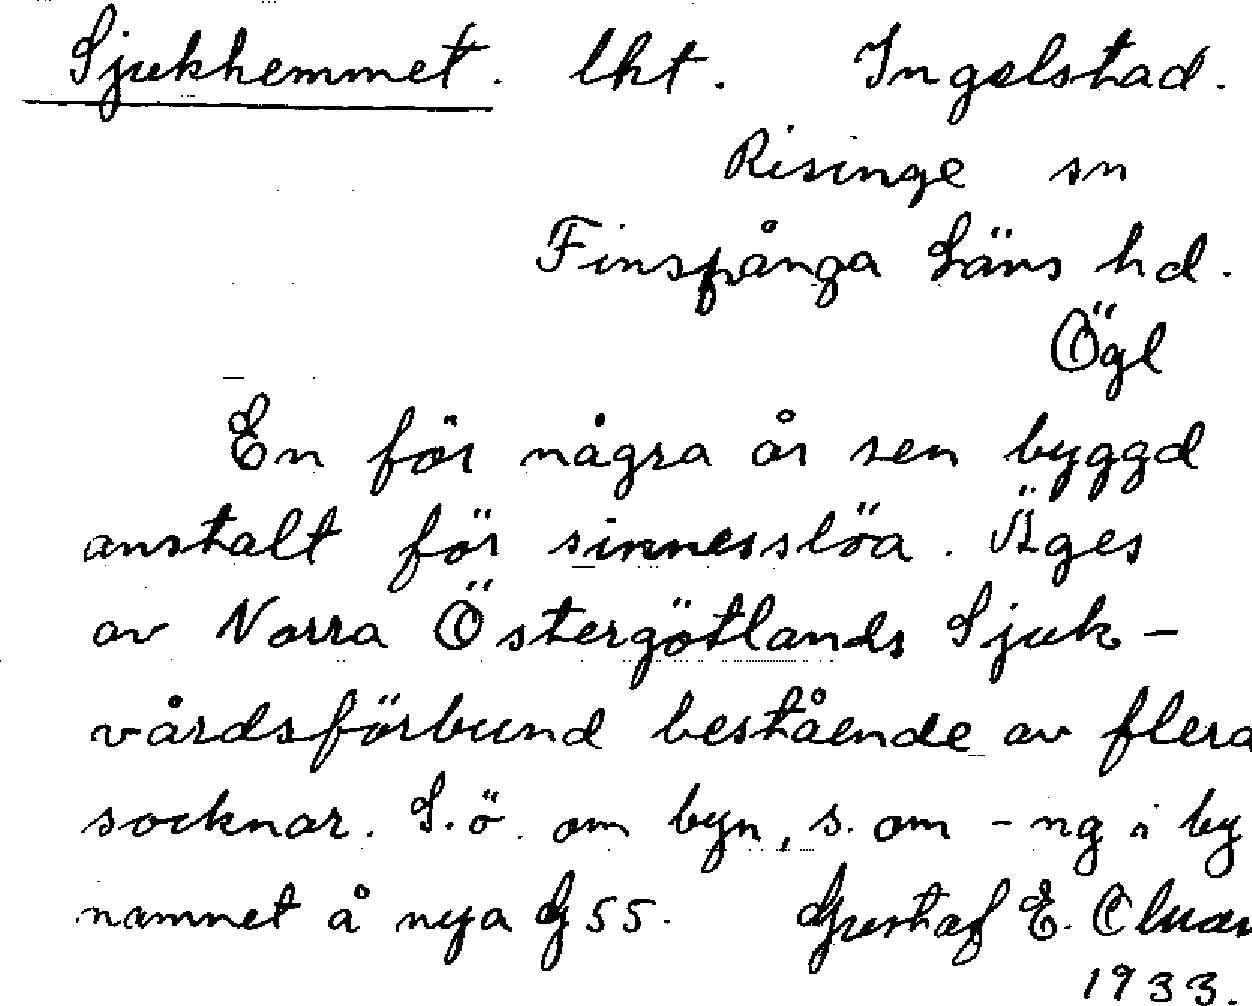 Sjukhemmet. lht. Ingelstad.
Risinge sn
Finspånga Läns hd.
Ögl
En för några år sen byggd
anstalt för sinnesslöa. Äges
av Norra Östergötlands Sjuk-
vårdsförbund bestående av flera
socknar. S.ö. om byn, s. om -ng i by
namnet å nya G 55. Gustaf E.
1933.